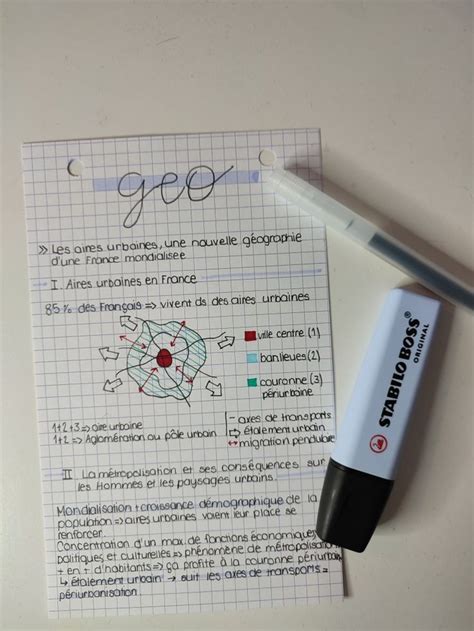 geo
» Les aires urbaines, une nouvelle géographie
d'une France mondialisée
I Aires urbaines en France
85% des Français => vivent ds des aires urbaines
ville centre (1)
banlieues (2)
couronne (3)
périurbaine
1+2+3 => aire urbaine
1+2 => Aglomération ou pôle urbain
- axes de transports
⇨ étalement urbain
↔ migration pendulaire
II La métropolisation et ses conséquences sur
les Hommes et les paysages urbains.
Mondialisation + croissance démographique de la
population => aires urbaines voient leur place se
renforcer.
Concentration d'un max. de fonctions économiques,
politiques et culturelles => phénomène de métropolisation
+ en + d'habitants => ça profite à la couronne périurbaine
↳ étalement urbain → suit les axes de transports =
périurbanisation.
STABILO BOSS®
ORIGINAL